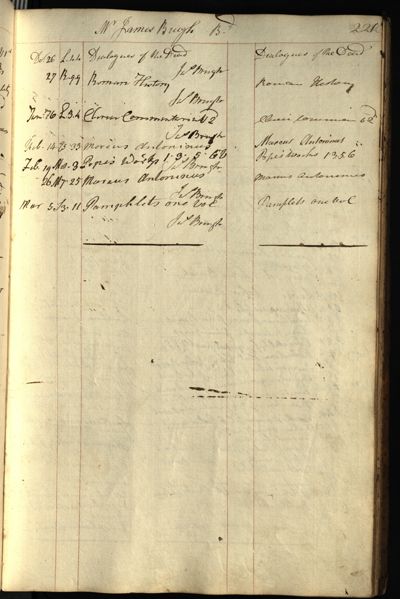 Mr James Brugh B. 221
Dec 26 L.44 Dialogues of the Dead Dialogues of the Dead
Jas Brugh
27 R.99 Roman History Roman History
Jas Brugh
Jan 76 L.3.4
Jas Brugh
Feb. 14 Marcus Antoninus Marcus Antoninus
Feb. 19 Popes Works 1. 3. 5. 6 Popes Works 1 3 5 6
Jas Brugh
26 25 Marcus Antoninus Marcus Antoninus
Jas Brugh
Mar 5 11 Pamphlets one vol Pamplets one vol
Jas Brugh